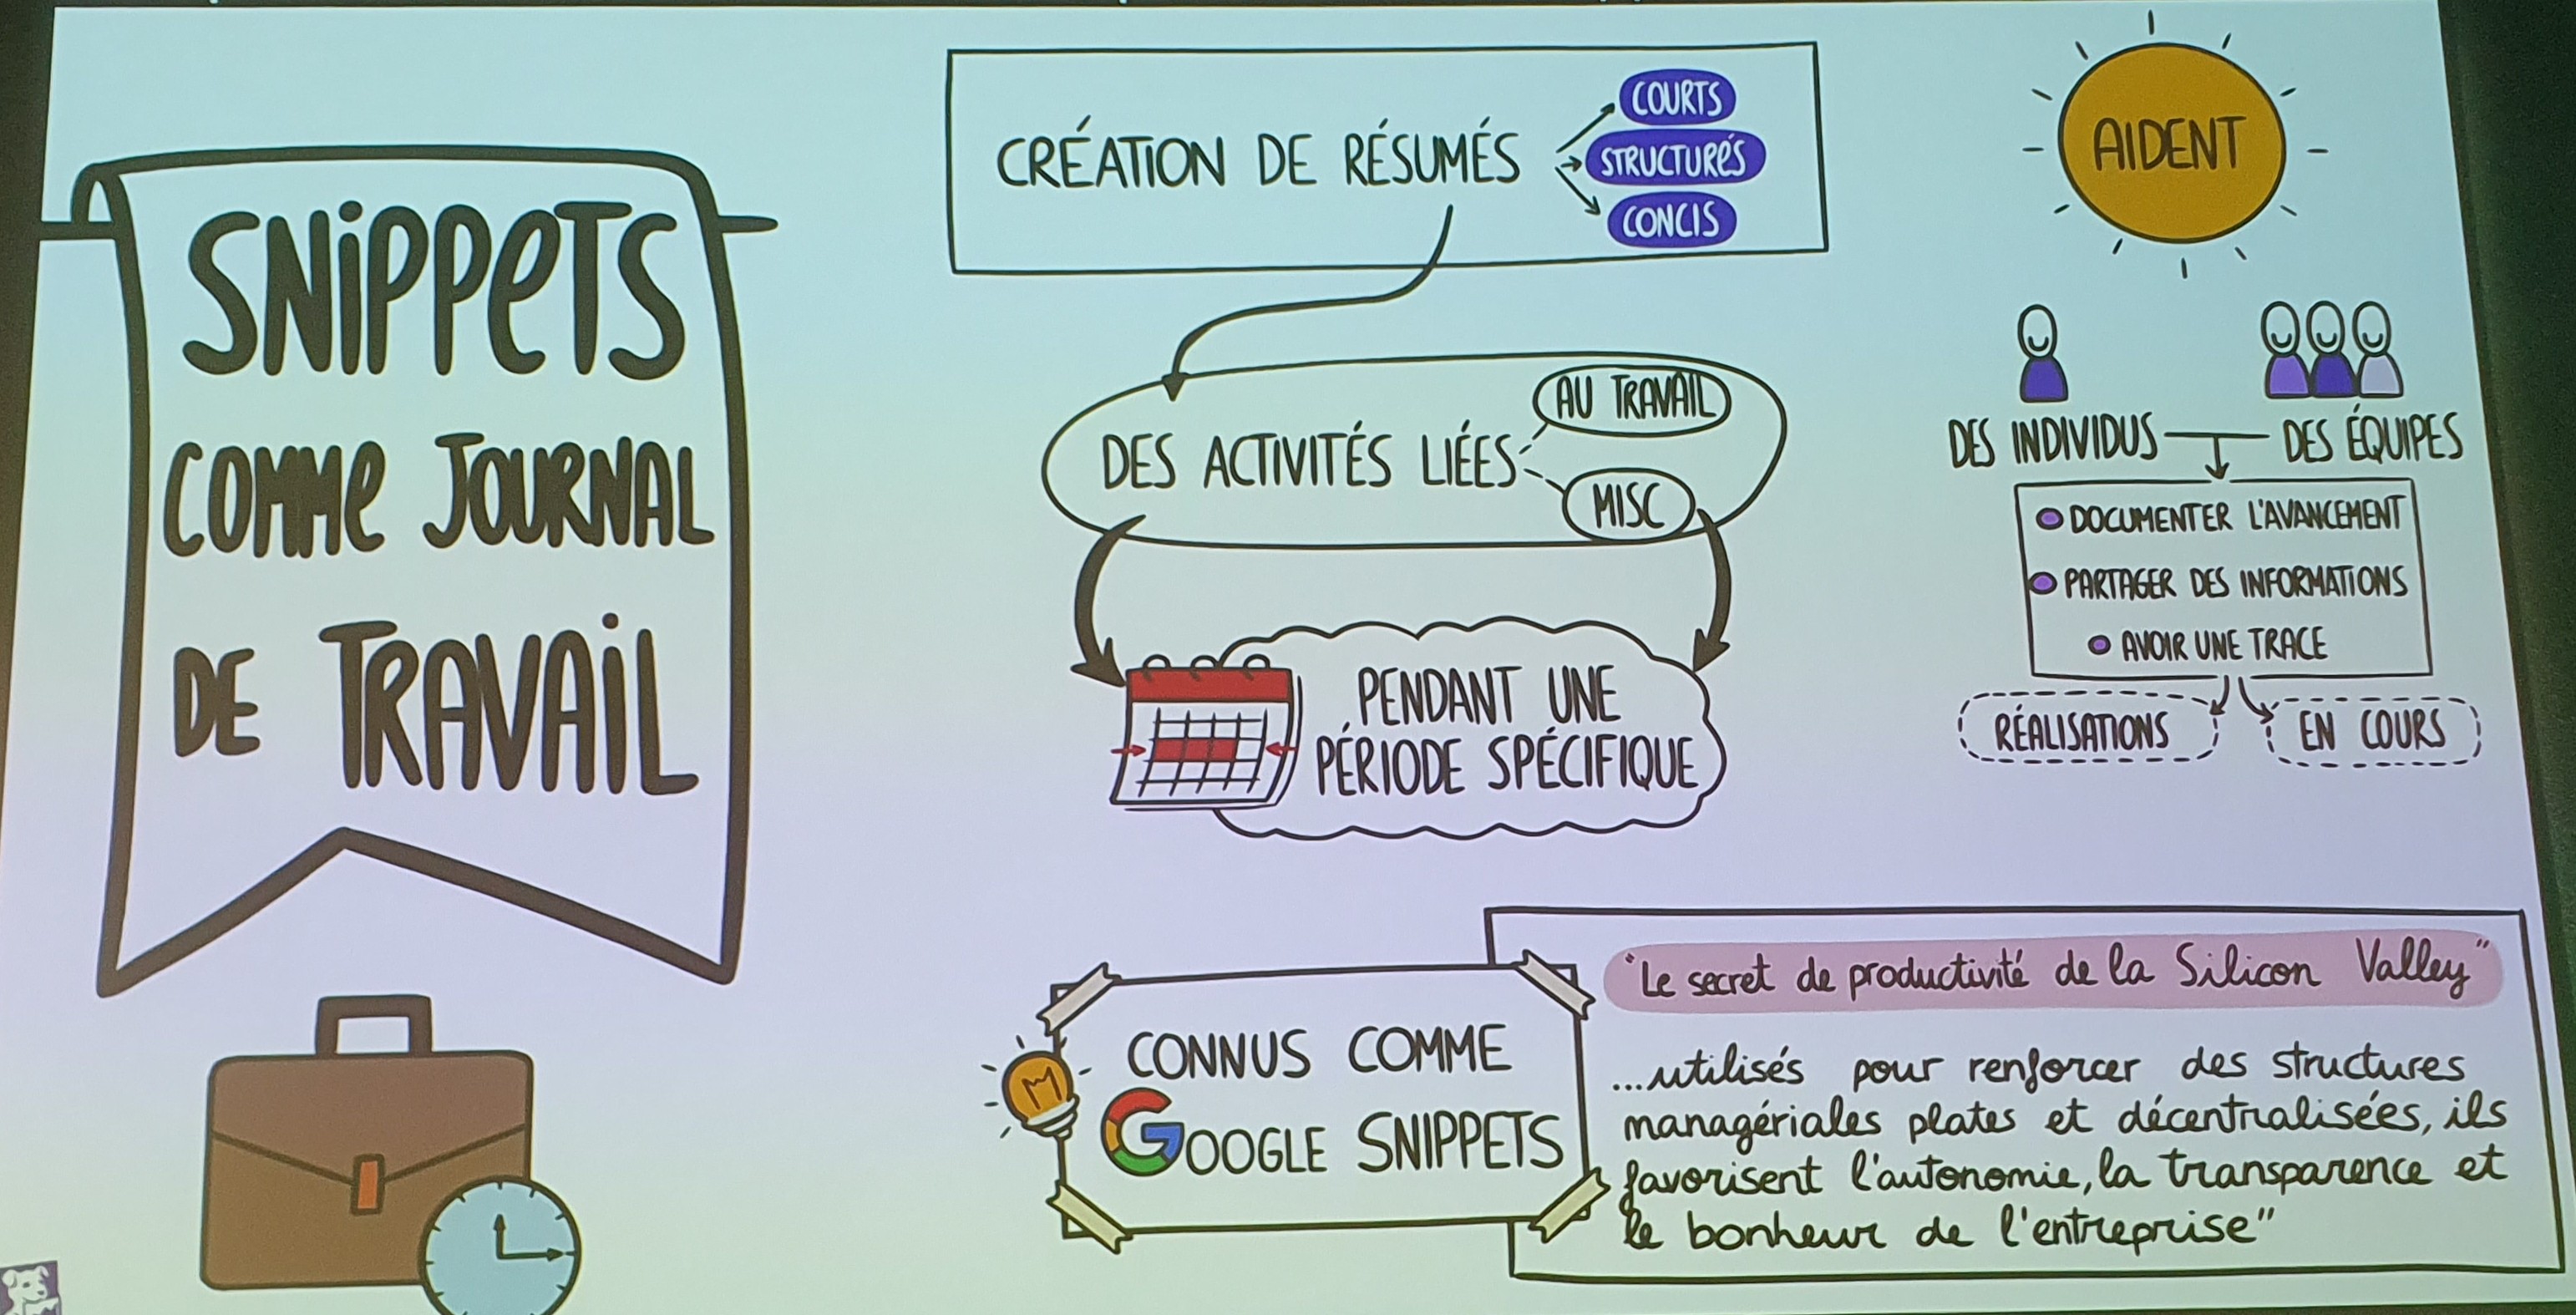 SNiPPeTS
COMMe JOURNAL
DE TRAVAiL
CRÉATION DE RÉSUMÉS
COURTS
STRUCTURÉS
CONCIS
DES ACTIVITÉS LIÉES
AU TRAVAIL
MISC
PENDANT UNE
PÉRIODE SPÉCIFIQUE
AIDENT
DES INDIVIDUS
DES ÉQUIPES
DOCUMENTER L'AVANCEMENT
PARTAGER DES INFORMATIONS
AVOIR UNE TRACE
RÉALISATIONS
EN COURS
CONNUS COMME
GOOGLE SNIPPETS
"Le secret de productivité de la Silicon Valley"
...utilisés pour renforcer des structures
managériales plates et décentralisées, ils
favorisent l'autonomie, la transparence et
le bonheur de l'entreprise"